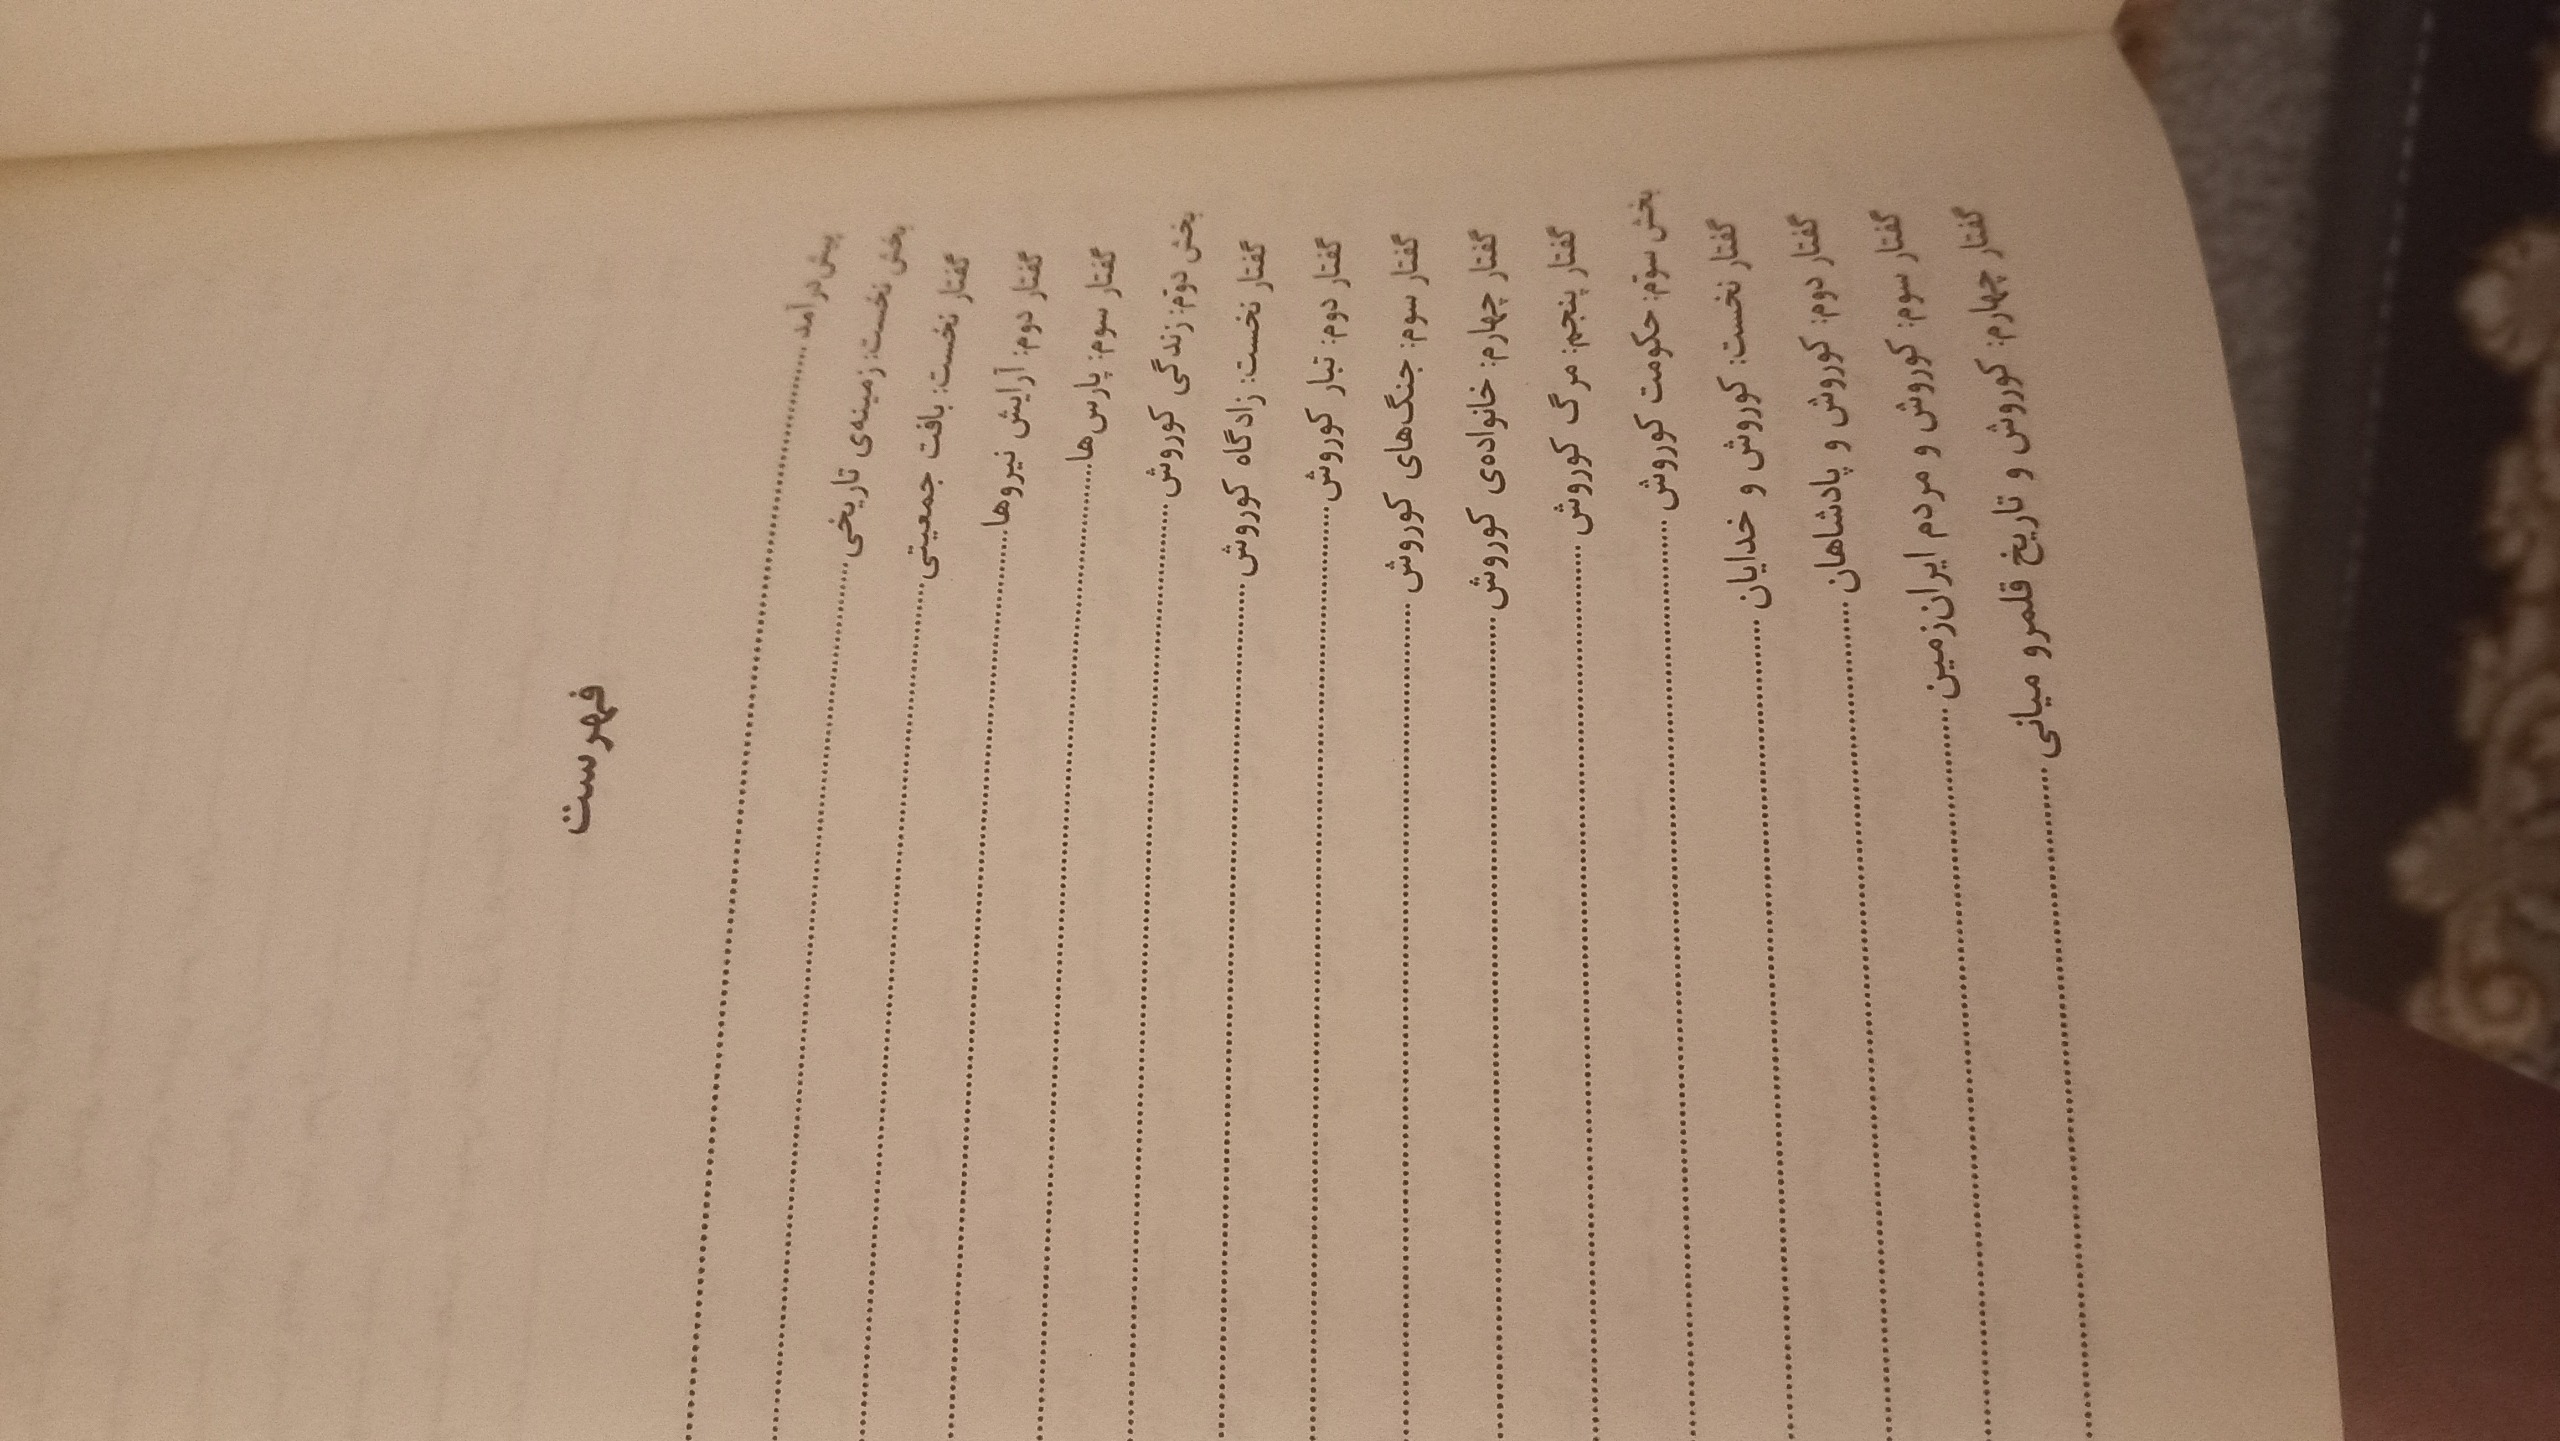 فهرست
پیش درآمد
بخش نخست: زمینه‌ی تاریخی
گفتار نخست: بافت جمعیتی
گفتار دوم: آرایش نیروها
گفتار سوم: پارس‌ها
بخش دوّم: زندگی کوروش
گفتار نخست: زادگاه کوروش
گفتار دوم: تبار کوروش
گفتار سوم: جنگ‌های کوروش
گفتار چهارم: خانواده‌ی کوروش
گفتار پنجم: مرگ کوروش
بخش سوّم: حکومت کوروش
گفتار نخست: کوروش و خدایان
گفتار دوم: کوروش و پادشاهان
گفتار سوم: کوروش و مردم ایران‌زمین
گفتار چهارم: کوروش و تاریخ قلمرو میانی